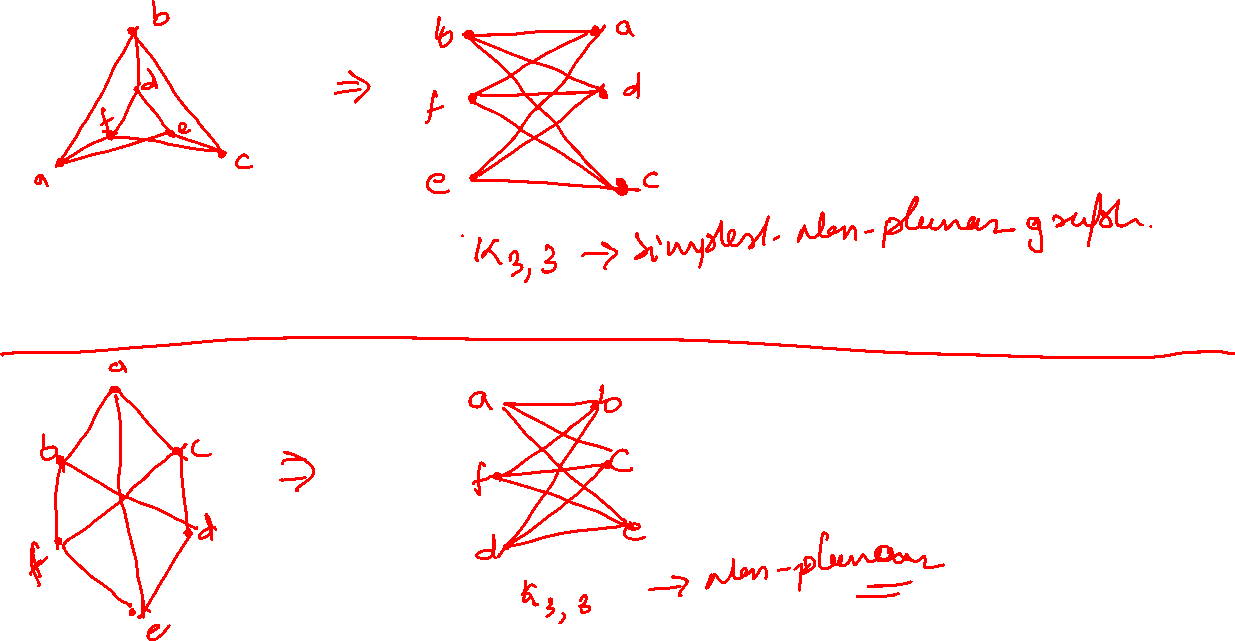 b
d
f
e
a
c
⇒
b
a
f
d
e
c
K3,3 → simplest non-planar graph.
a
b
c
f
d
e
⇒
a
b
f
c
d
e
K3,3 → Non-planar